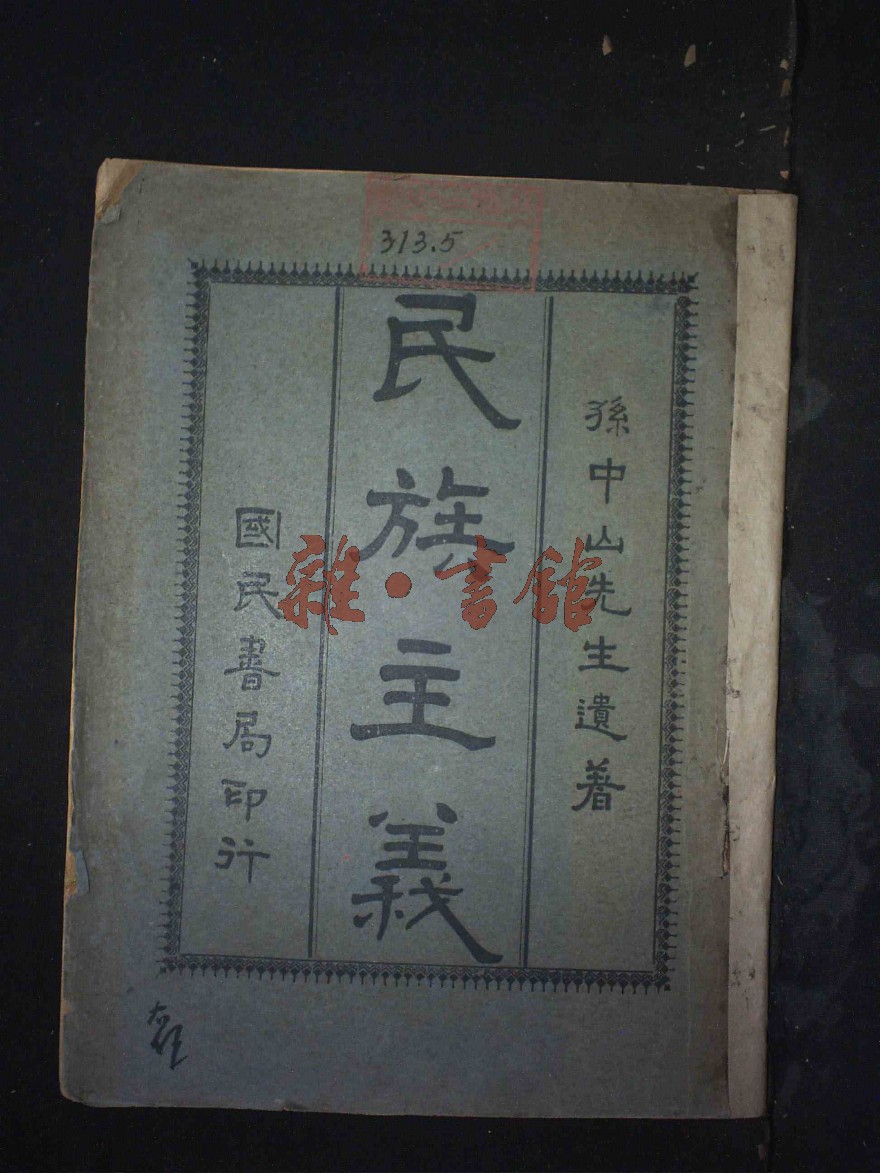 313.5
孫中山先生遺著
民族主義
國民書局印行
雜·書館